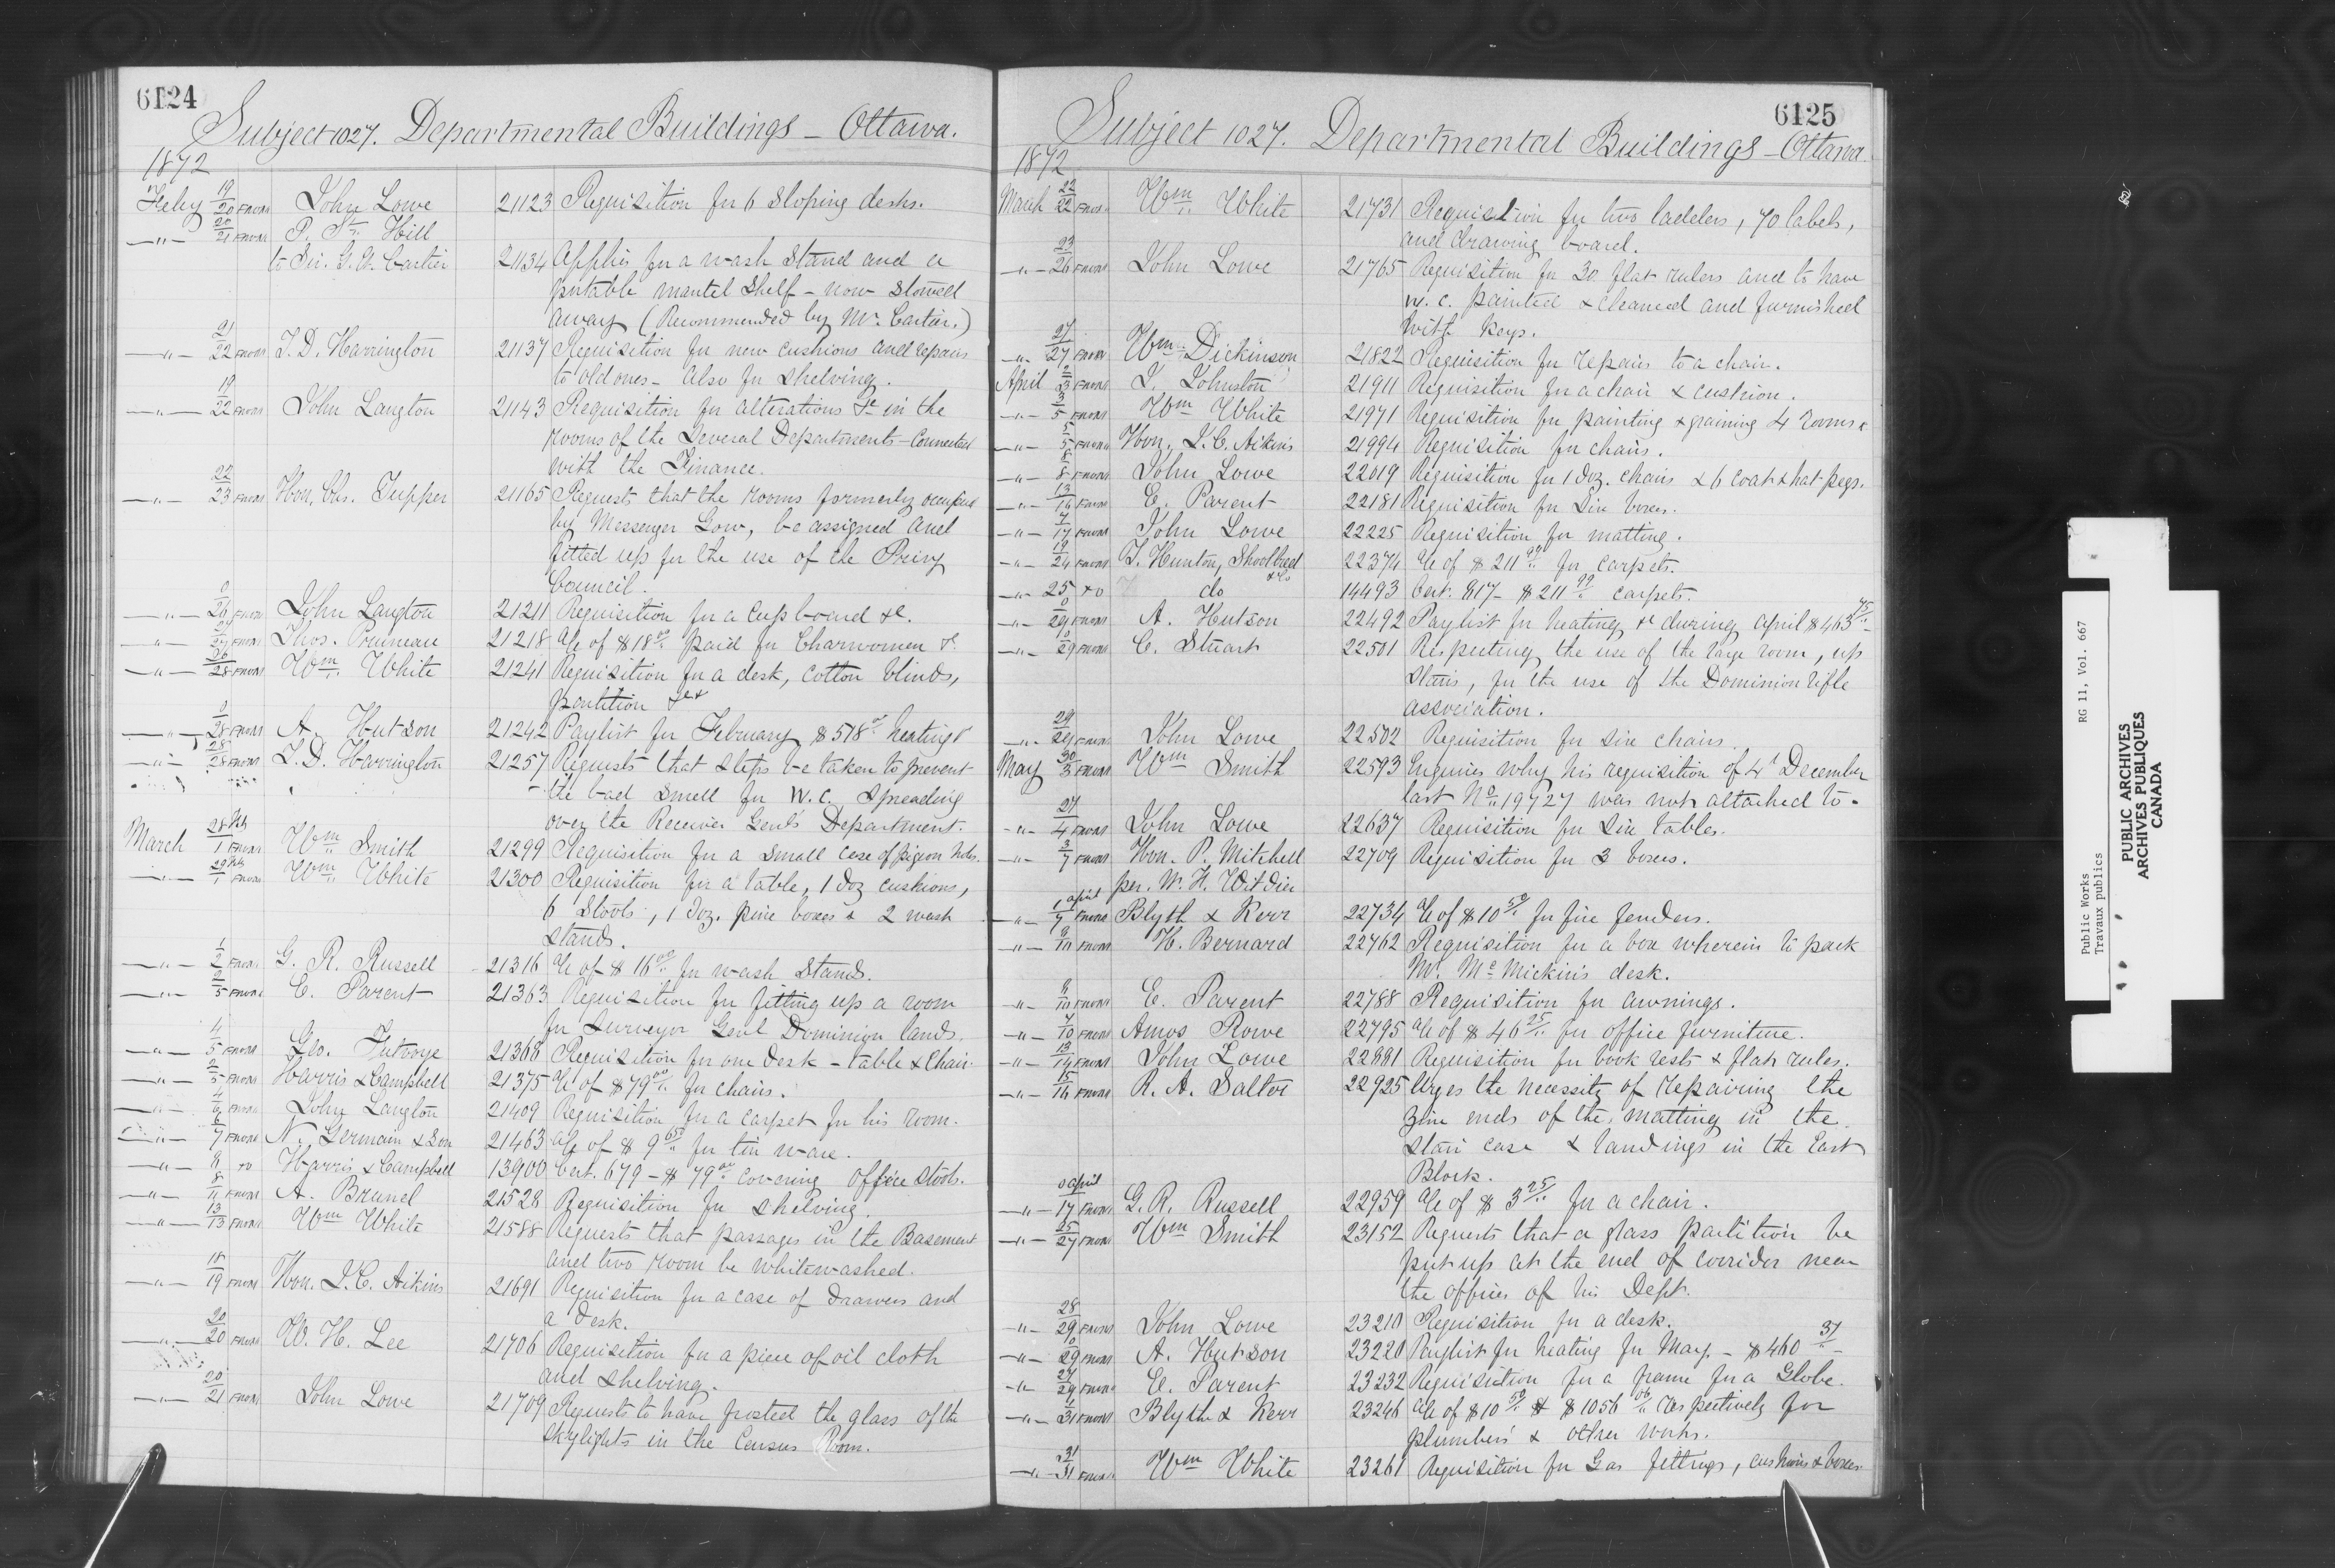 6124
Subject 1027. Departmental Buildings – Ottawa.
1872
Feby 19/20 FROM John Lowe 21123 Requisition for 6 Sloping desks.
—"— 20/21 FROM P. St. Hill
to Sir. G. E. Cartier 21134 Applies for a wash Stand and a
portable mantel Shelf – now stowed
away (Recommended by Mr. Cartier.)
—"— 21/22 FROM T. D. Harrington 21137 Requisition for new cushions and repairs
to old ones – also for shelving.
—"— 19/22 FROM John Langton 21143 Requisition for alterations &c in the
rooms of the Several Departments – Connected
with the Finance.
—"— 22/23 FROM Hon. Chs. Tupper 21165 Requests that the rooms formerly occupied
by Messenger Gow, be assigned and
fitted up for the use of the Privy
Council.
—"— 0/26 FROM John Langton 21211 Requisition for a Cupboard &c.
—"— FROM Thos. 21218 a/c of $18.00 paid for Charwomen &c
—"— 26/28 FROM Wm. White 21241 Requisition for a desk, cotton blinds,
partition &c
—"— 0/28 FROM A. Hutson 21242 Paylist for February $578 heating &
—"— 28/28 FROM T. D. Harrington 21257 Requests that Steps be taken to prevent
the bad Smell for W.C. spreading
over the Receiver Genl's Department.
March 28 Feb/1 FROM Wm. Smith 21299 Requisition for a small case of pigeon holes.
—"— 29 Feb/1 FROM Wm. White 21300 Requisition for a table, 1 doz cushions,
6 Stools, 1 doz. pine boxes & 2 wash
stands.
—"— 1/2 FROM G. R. Russell 21316 a/c of $16.00 for wash Stands.
—"— 2/5 FROM E. Parent 21363 Requisition for fitting up a room
for Surveyor Genl Dominion lands.
—"— 4/5 FROM Geo. Futvoye 21368 Requisition for one desk – table & Chair
—"— 2/5 FROM Harris & Campbell 21375 a/c of $79.00 for chairs.
—"— 4/6 FROM John Langton 21409 Requisition for a carpet for his room.
—"— 6/7 FROM N. Germain & Son 21463 a/c of $9.65 for tin ware.
—"— 8 TO Harris & Campbell 13900 Cert. 679 – $79.00 covering office stools.
—"— 8/11 FROM A. Brunel 21528 Requisition for shelving.
—"— 13/13 FROM Wm White 21588 Requests that passages in the Basement
and two room be whitewashed.
—"— 18/19 FROM Hon. J. C. Aikins 21691 Requisition for a case of Draowers and
a desk.
—"— 20/20 FROM W. H. Lee 21706 Requisition for a piece of oil cloth
and shelving.
—"— 20/21 FROM John Lowe 21709 Requests to have frosted the glass of the
skylights in the Census Room.
6125
Subject 1027. Departmental Buildings – Ottawa
1872
March 22/22 FROM Wm. White 21731 Requisition for two ladders, 70 labels,
and drawing board.
—"— 23/26 FROM John Lowe 21765 Requisition for 30 flat rulers and to have
w.c. painted & cleaned and furnished
with keys.
—"— 27/27 FROM Wm. Dickinson 21822 Requisition for repairs to a chair.
April 2/3 FROM J. Johnston 21911 Requisition for a chair & cushion.
—"— 3/5 FROM Wm White 21971 Requisition for painting & graining 4 rooms &
—"— 5/5 FROM Hon. J. C. Aikins 21994 Requisition for chairs.
—"— 8/8 FROM John Lowe 22019 Requisition for 1 doz. chairs & 6 coat & hat pegs.
—"— 13/16 FROM E. Parent 22181 Requisition for Six boxes.
—"— 7/17 FROM John Lowe 22225 Requisition for matting.
—"— 19/24 FROM T. Hunton, Shoolbred & Co 22374 a/c of $211.99 for carpets.
—"— 25 TO do 14493 Cert. 817 – $211.99 carpets.
—"— 0/29 FROM A. Hutson 22492 Paylist for heating &c during April $463.75
—"— 10/29 FROM C. Stuart 22501 Respecting the use of the large room, up
stairs, for the use of the Dominion rifle
association.
—"— 29/29 FROM John Lowe 22502 Requisition for six chairs.
May 30/3 FROM Wm Smith 22593 Enquires why his requisition of 4th December
last No. 19727 was not attached to.
—"— 27/4 FROM John Lowe 22637 Requisition for Six tables.
—"— 3/7 FROM Hon. P. Mitchell 22709 Requisition for 3 boxes.
per. W. H.
—"— 1 april/7 FROM Blyth & Kerr 22734 a/c of $10.50 for fire fenders.
—"— 8/10 FROM H. Bernard 22762 Requisition for a box wherein to pack
Mr. McMickin's desk.
—"— 8/10 FROM E. Parent 22788 Requisition for awnings.
—"— 7/10 FROM Amos Rowe 22795 a/c of $46.25 for office furniture.
—"— 13/14 FROM John Lowe 22881 Requisition for book rests & flat rules.
—"— 15/16 FROM R. A. Salter 22925 Urges the necessity of repairing the
zinc ends of the matting in the
stair case & landings in the East
Block.
—"— 0 april/17 FROM G. R. Russell 22959 a/c of $3.25 for a chair.
—"— 25/27 FROM Wm Smith 23152 Requests that a glass partition be
put up at the end of corridor near
the offices of his Dept.
—"— 28/29 FROM John Lowe 23210 Requisition for a desk.
—"— 0/29 FROM A. Hutson 23220 Paylist for heating for May. – $460.37
—"— 27/29 FROM E. Parent 23232 Requisition for a frame for a Globe.
—"— 1/31 FROM Blyth & Kerr 23246 a/c of $10.50 & $1056.06 respectively for
plumbers' & other works.
—"— 31/31 FROM Wm White 23261 Requisition for Gas fittings, cushions & boxes
Public Works RG 11, Vol. 667
Travaux publics
PUBLIC ARCHIVES
ARCHIVES PUBLIQUES
CANADA